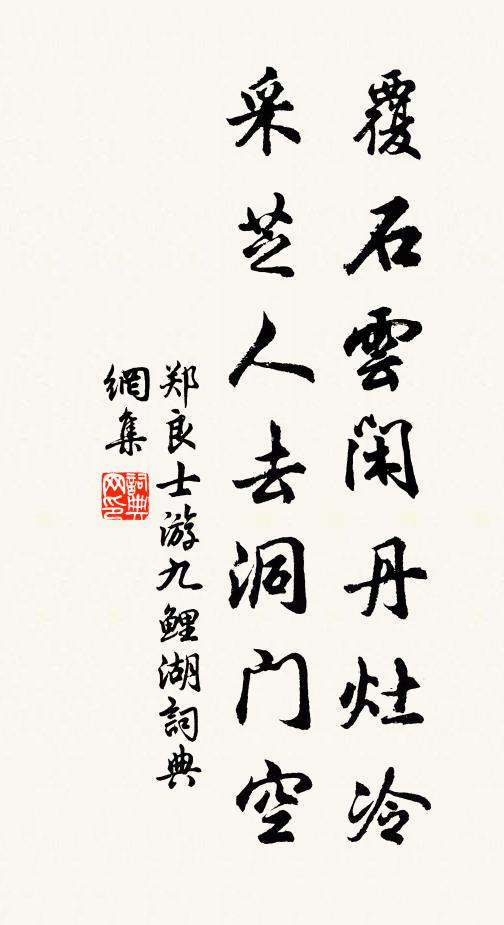 覆石雲闲丹灶冷
采芝人去洞门空
郑良士游九鲤湖詞典
網集
詞典
网印